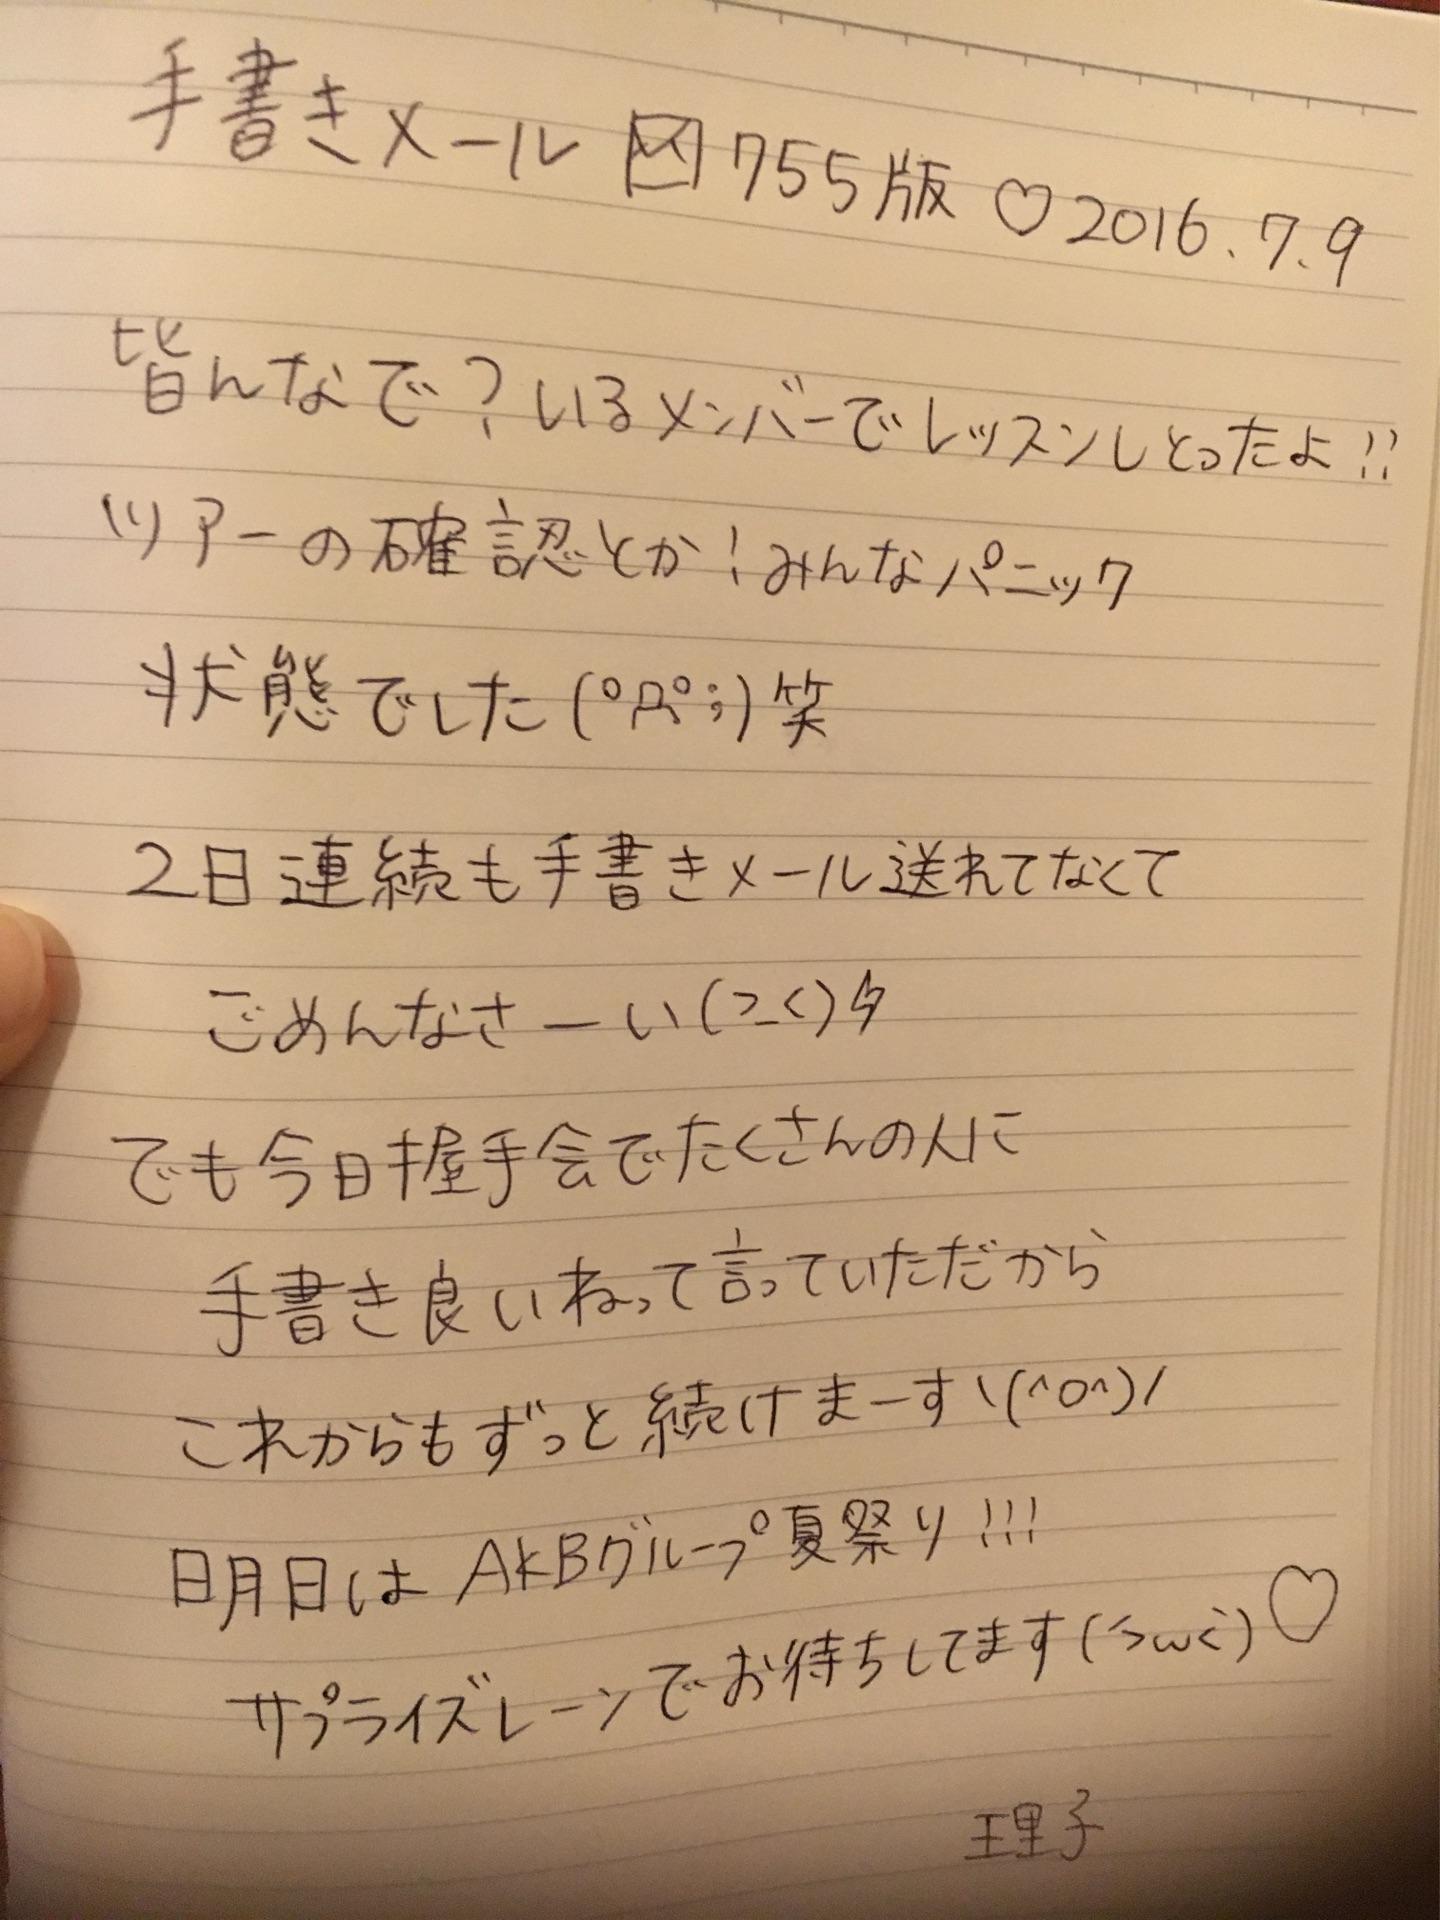 手書きメール ✉ 755版 ♡ 2016.7.9
皆んなで?いるメンバーでレッスンしとったよ!!
ツアーの確認とか!みんなパニック
状態でした(°Д°;)笑
2日連続も手書きメール送れてなくて
ごめんなさーい(>_<)ϟ
でも今日握手会でたくさんの人に
手書き良いねって言っていただだから
これからもずっと続けまーす\(^o^)/
明日はAKBグループ夏祭り!!!
サプライズレーンでお待ちしてます(´>ω<`)♡
理子